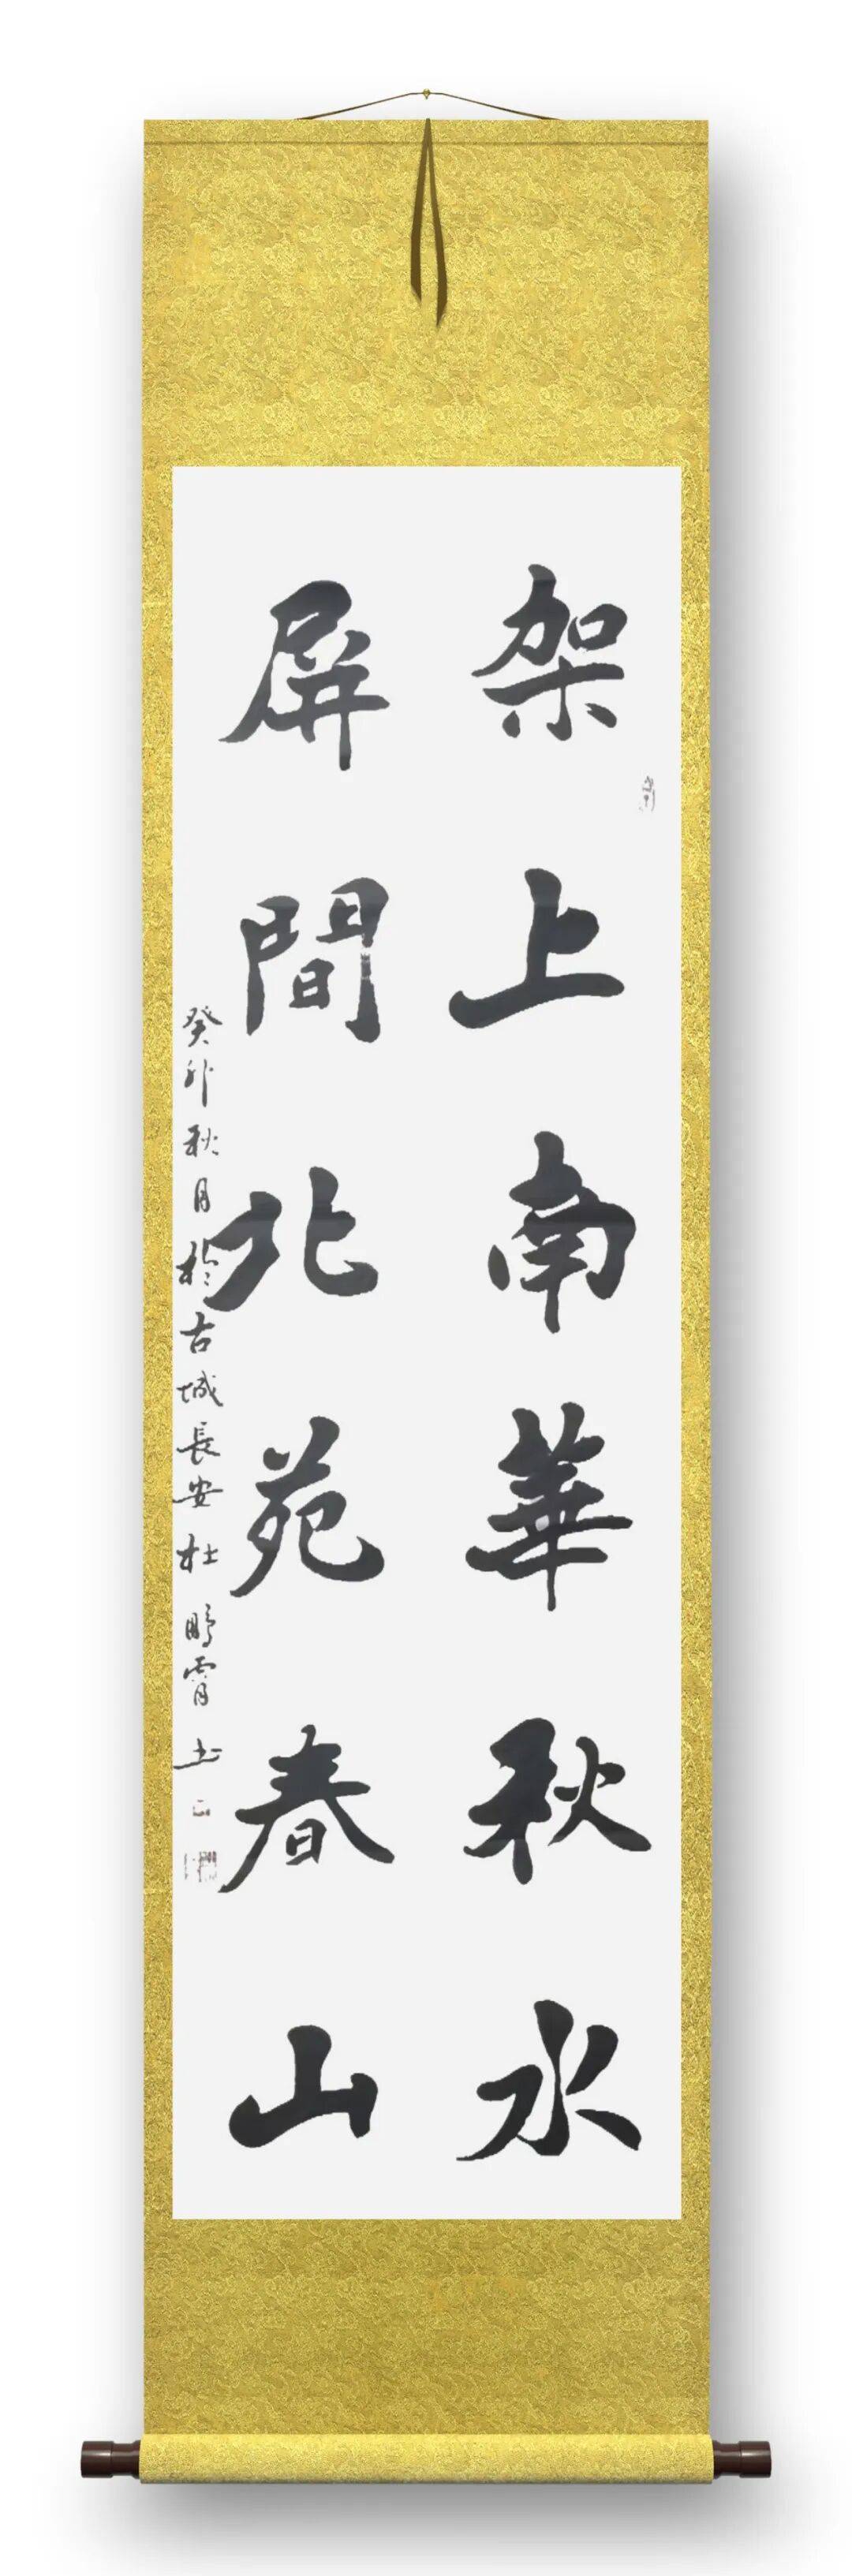 架上南華秋水
屏間北苑春山
癸卯秋月於古城長安杜鵬霄書